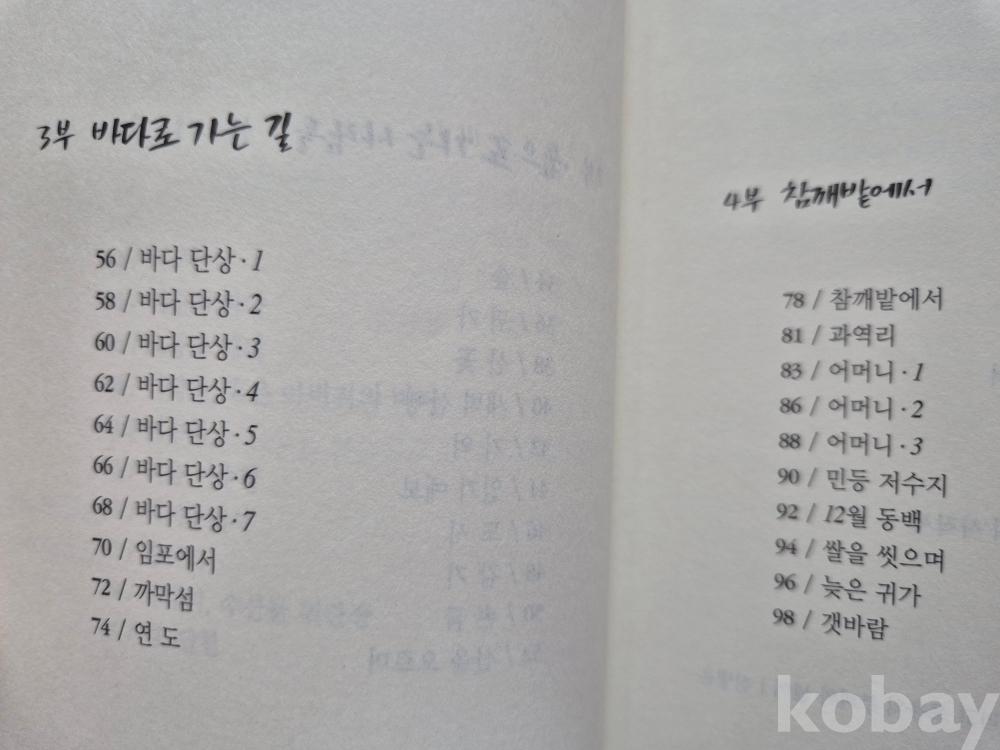 3부 바다로 가는 길
56 / 바다 단상 · 1
58 / 바다 단상 · 2
60 / 바다 단상 · 3
62 / 바다 단상 · 4
64 / 바다 단상 · 5
66 / 바다 단상 · 6
68 / 바다 단상 · 7
70 / 임포에서
72 / 까막섬
74 / 연 도
4부 참깨밭에서
78 / 참깨밭에서
81 / 과역리
83 / 어머니 · 1
86 / 어머니 · 2
88 / 어머니 · 3
90 / 민등 저수지
92 / 12월 동백
94 / 쌀을 씻으며
96 / 늦은 귀가
98 / 갯바람
kobay